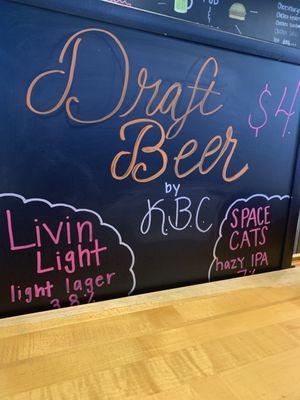 Draft
Beer
$4
by
K.B.C
Livin
Light
light lager
3.8%
SPACE
CATS
hazy IPA
7%